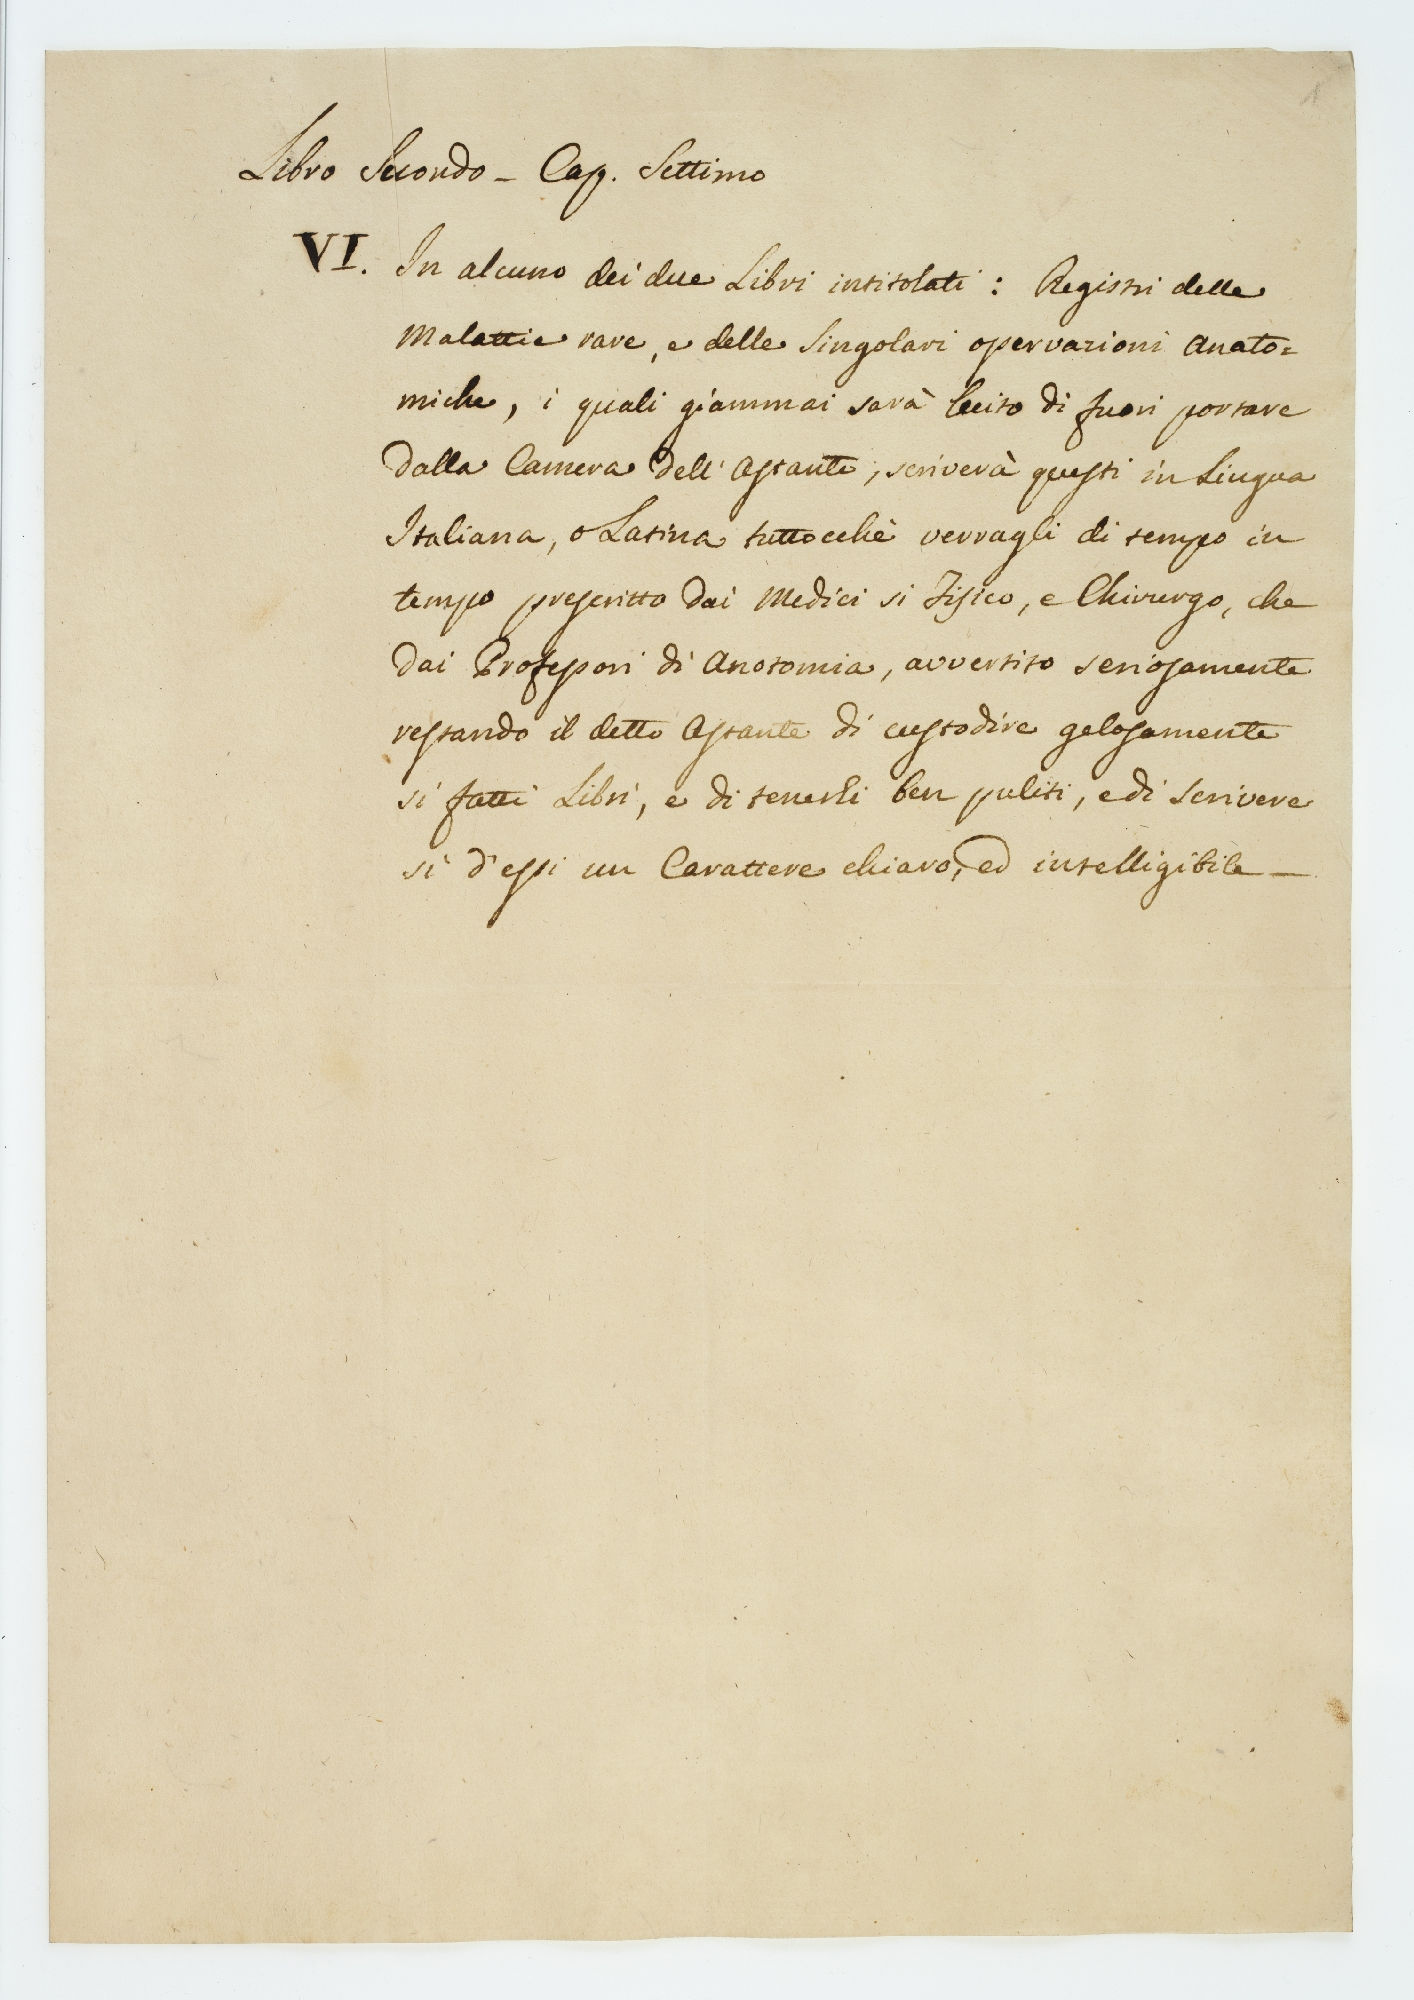 1
Libro Secondo - Cap. Settimo
VI. In alcuno dei due Libri intitolati: Registri delle
Malattie rare, e delle Singolari osservazioni Anato=
miche, i quali giammai sarà lecito di fuori portare
dalla Camera dell' Astante, scriverà questi in Lingua
Italiana, o Latina tuttocchè verragli di tempo in
tempo prescritto dai Medici si Fisico, e Chirurgo, che
dai Professori di Anotomia, avvertito seriosamente
restando il detto Astante di custodire gelosamente
si fatti Libri, e di tenerli ben puliti, e di scrivere
si d'essi un Carattere chiaro, ed intelligibile —